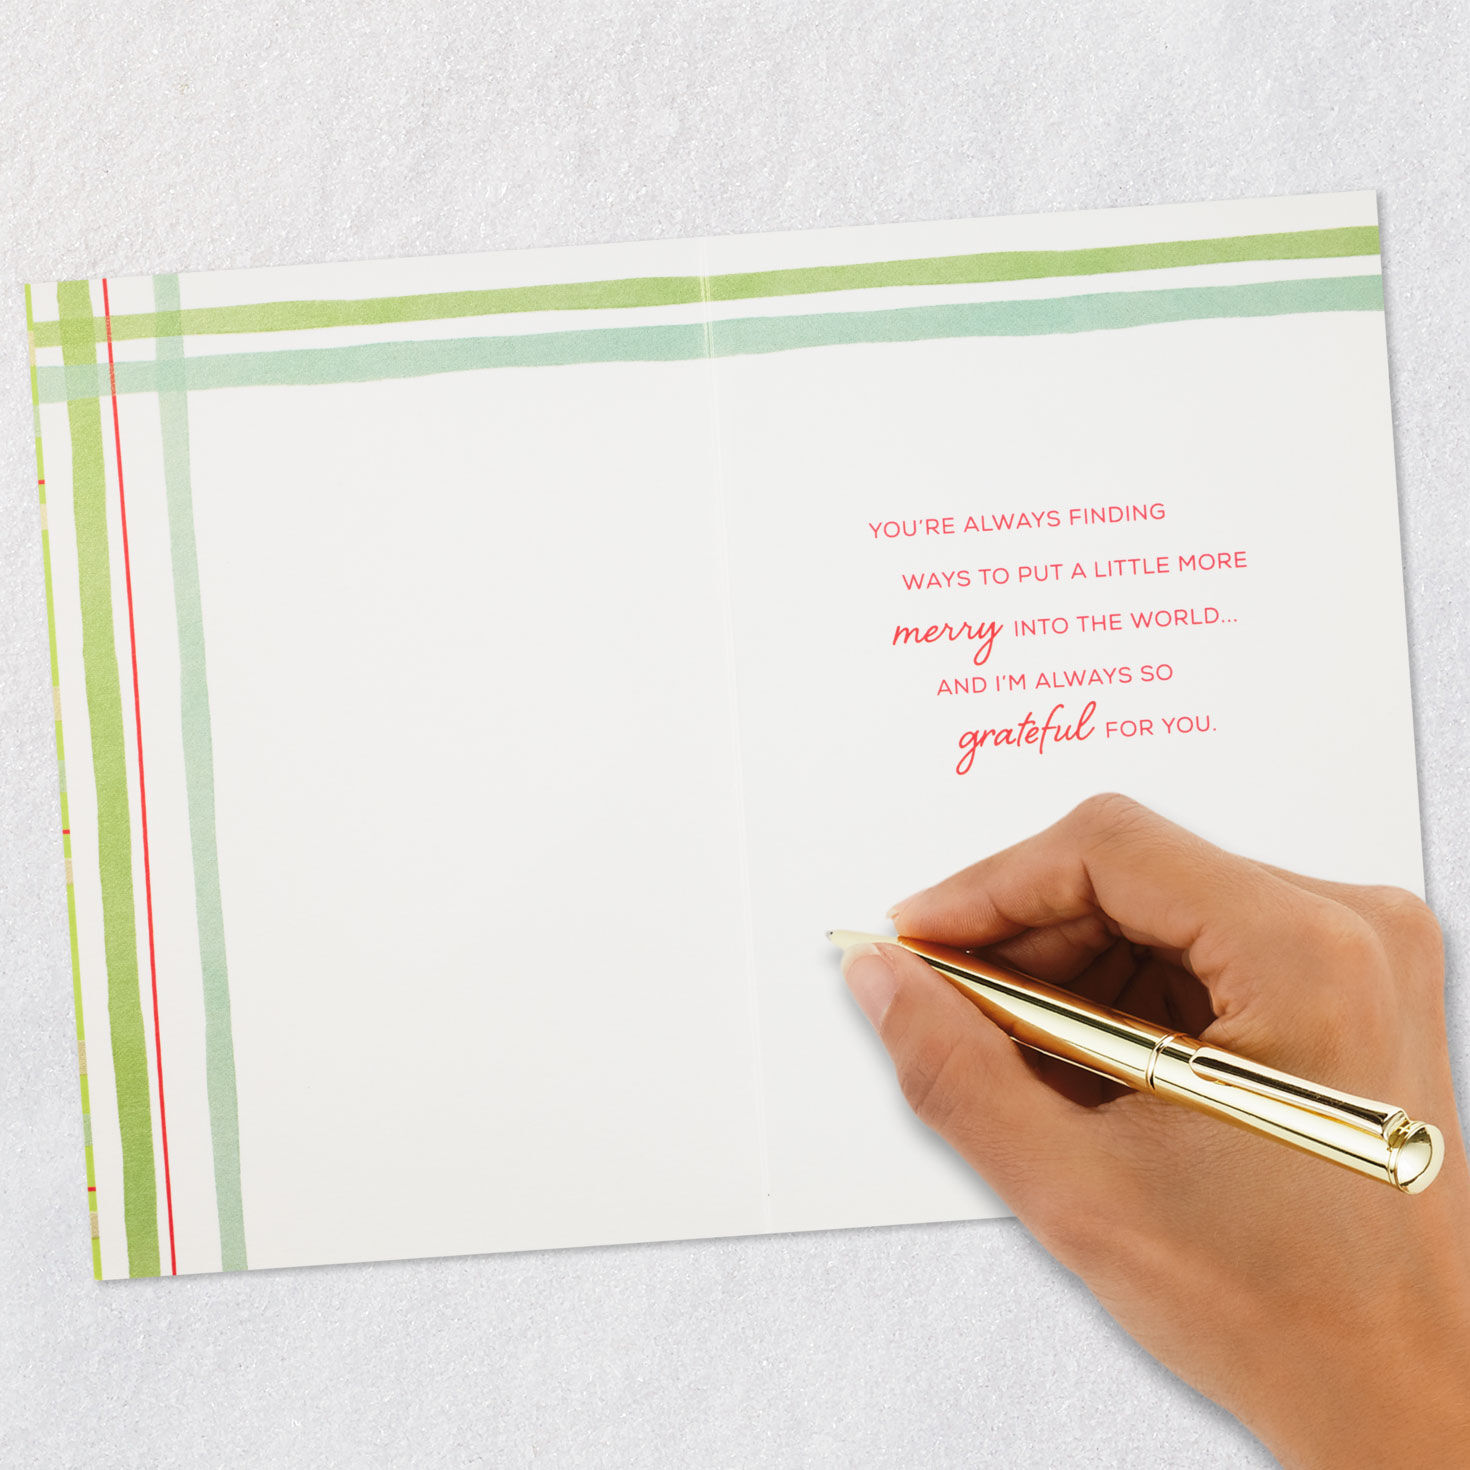 YOU'RE ALWAYS FINDING
WAYS TO PUT A LITTLE MORE
merry INTO THE WORLD...
AND I'M ALWAYS SO
grateful FOR YOU.